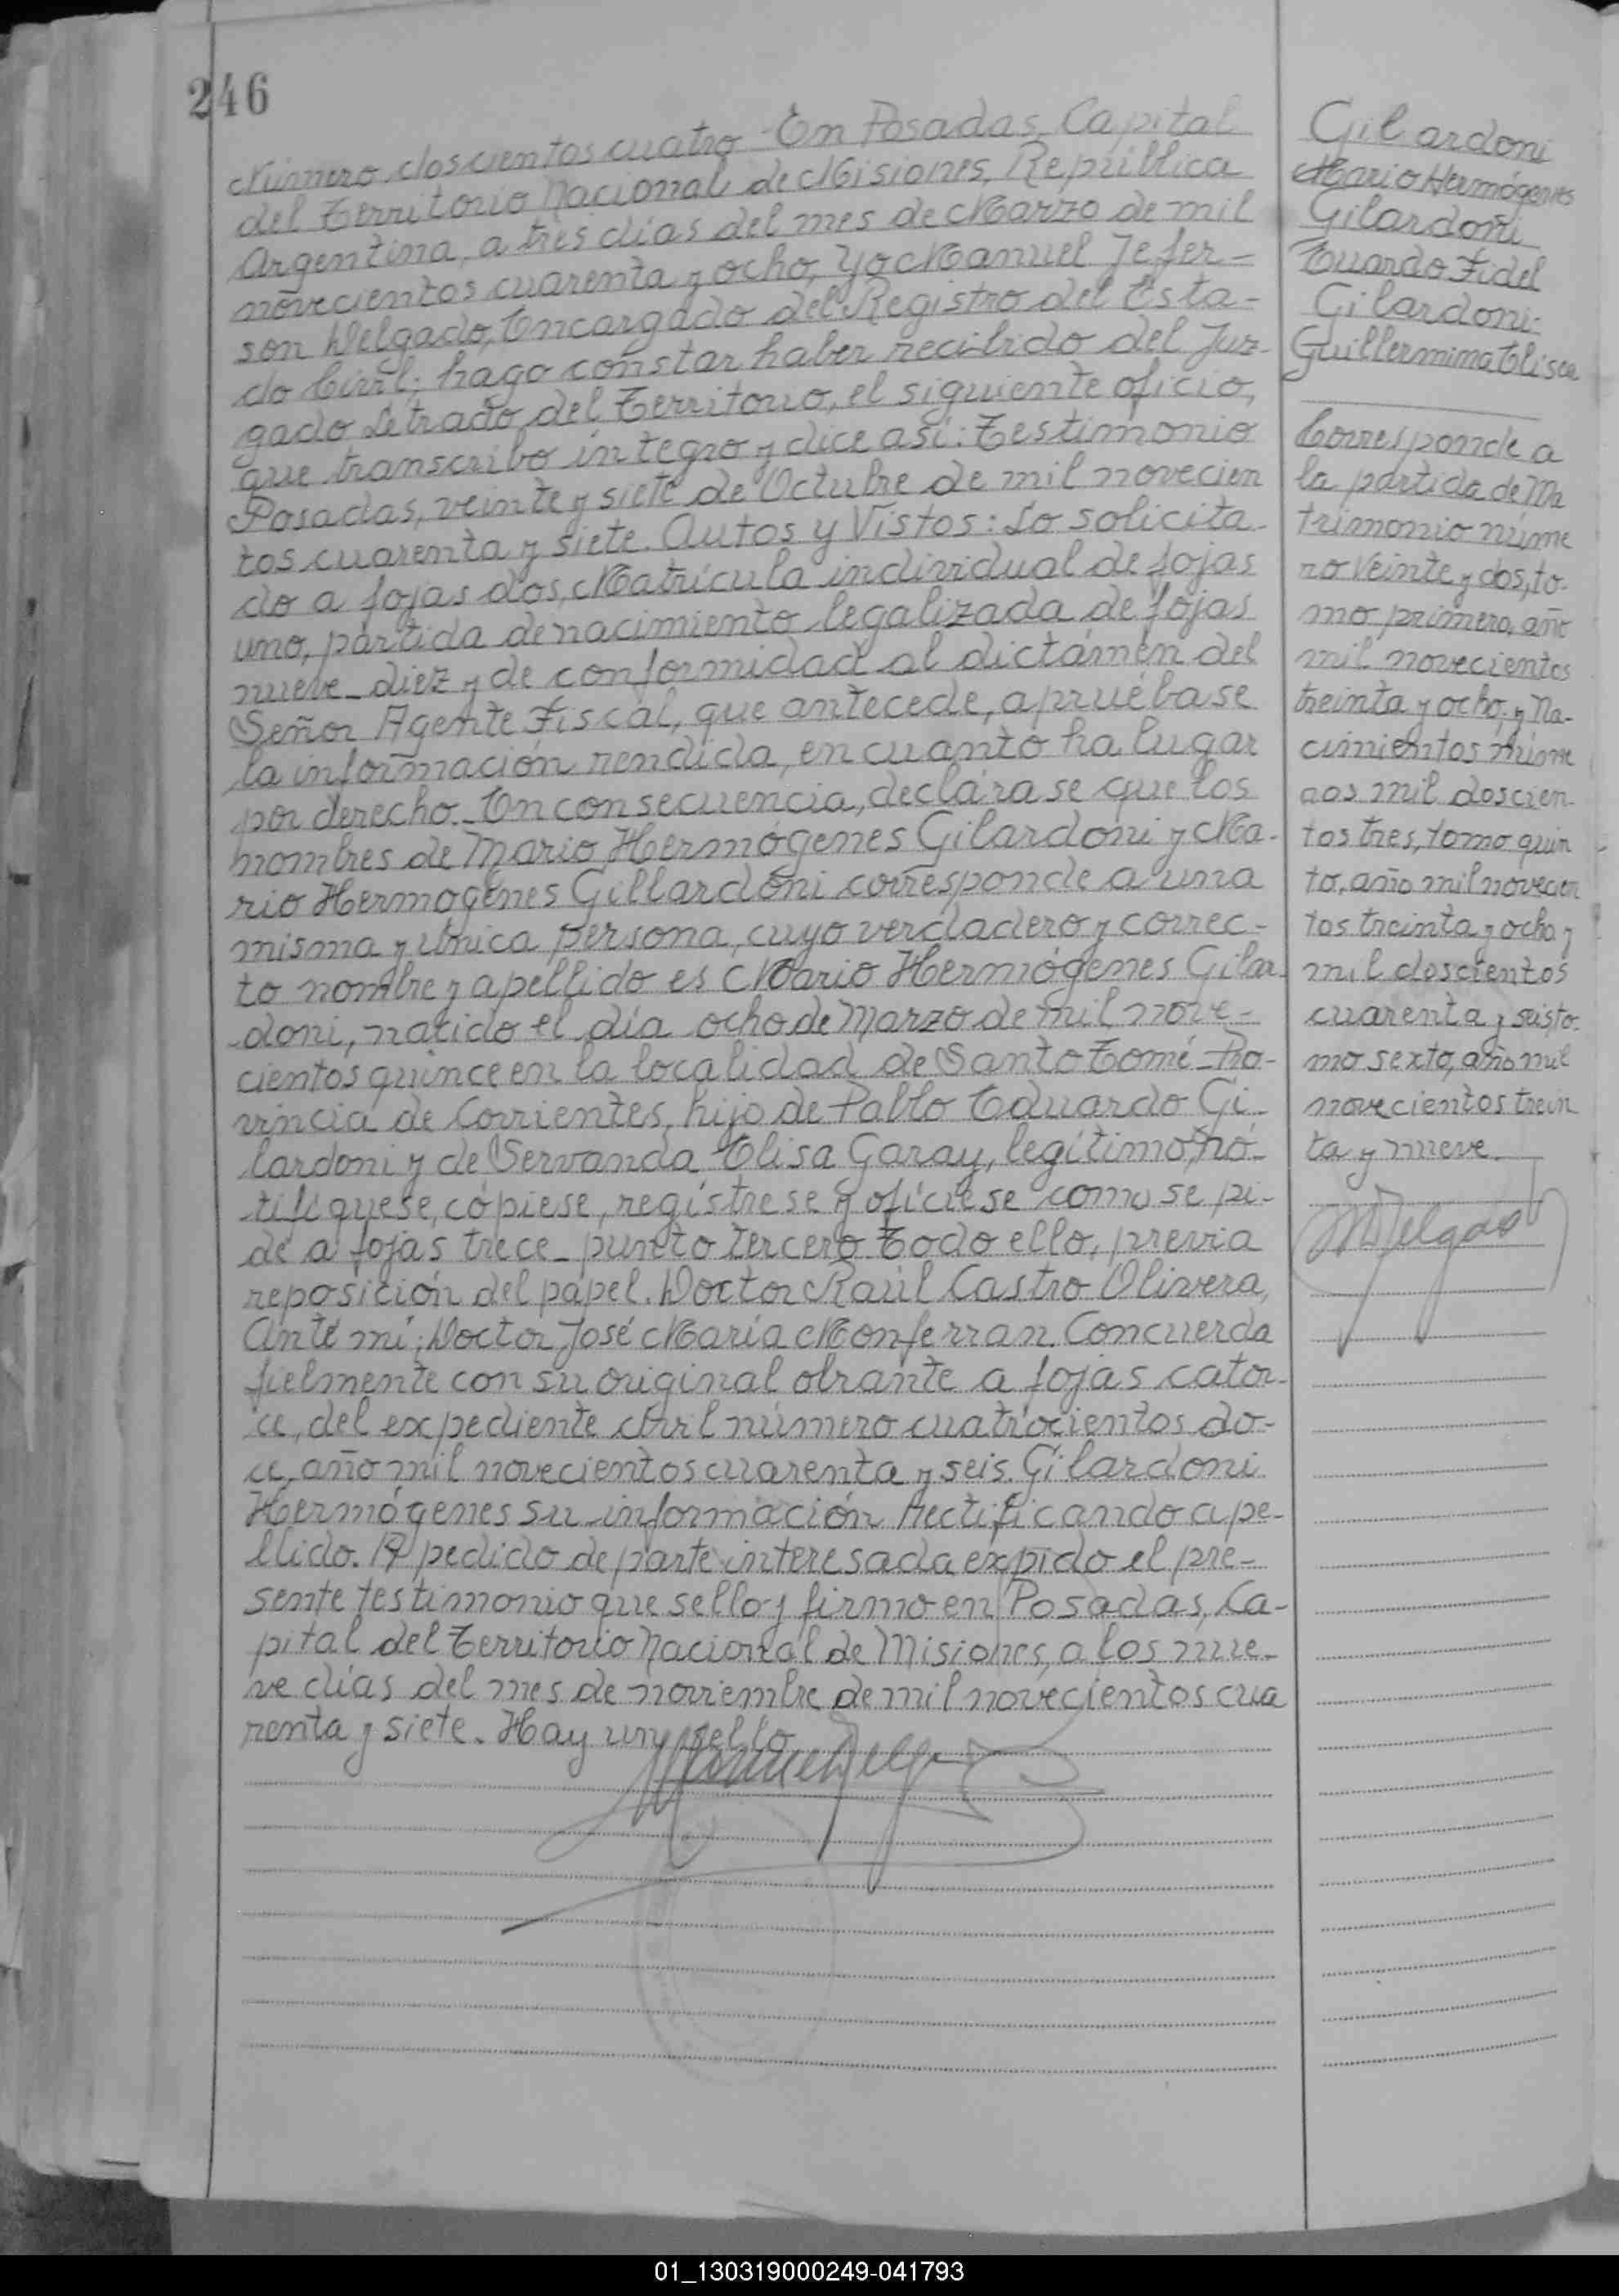 246
Número doscientos cuatro - En Posadas, Capital
del Territorio Nacional de Misiones, República
Argentina, a tres días del mes de Marzo de mil
novecientos cuarenta y ocho, Yo Manuel Jefer-
son Delgado, Encargado del Registro del Esta-
do Civil; hago constar haber recibido del Juz-
gado Letrado del Territorio, el siguiente oficio,
que transcribo íntegro y dice así: Testimonio
Posadas, veinte y siete de Octubre de mil novecien
tos cuarenta y siete. Autos y Vistos: Lo solicita-
do a fojas dos, Matrícula individual de fojas
uno, partida de nacimiento legalizada de fojas
nueve - diez y de conformidad al dictámen del
Señor Agente Fiscal, que antecede, apruébase
la información rendida, en cuanto ha lugar
por derecho. En consecuencia, declárase que los
nombres de Mario Hermógenes Gilardoni y Ma-
rio Hermogenes Gillardoni corresponde a una
misma y única persona, cuyo verdadero y correc-
to nombre y apellido es Mario Hermógenes Gilar-
doni, nacido el día ocho de Marzo de mil nove-
cientos quince en la localidad de Santo Tomé - Pro-
vincia de Corrientes, hijo de Pablo Eduardo Gi-
lardoni y de Servanda Elisa Garay, legítimo, nó-
tifíquese, cópiese, regístrese y ofíciese como se pi-
de a fojas trece - punto tercero Todo ello, previa
reposición del papel. Doctor Raúl Castro Olivera,
Ante mí; Doctor José María Monferran. Concuerda
fielmente con su original obrante a fojas cator-
ce, del expediente civil número cuatrocientos do-
ce, año mil novecientos cuarenta y seis. Gilardoni
Hermógenes su información rectificando ape-
llido. A pedido de parte interesada expido el pre-
sente testimonio que sello y firmo en Posadas, Ca-
pital del Territorio Nacional de Misiones, a los nue-
ve días del mes de noviembre de mil novecientos cua
renta y siete. Hay un sello
Gilardoni
Mario Hermógenes
Gilardoni
Eduardo Fidel
Gilardoni
Guillermina Elisea
Corresponde a
la partida de Ma
trimonio núme
ro Veinte y dos, to-
mo primero, año
mil novecientos
treinta y ocho; y Na-
cimientos núme
ros mil doscien-
tos tres, tomo quin
to, año mil novecien
tos treinta y ocho y
mil doscientos
cuarenta y seis to-
mo sexto, año mil
novecientos trein
ta y nueve.
MDelgado
01_130319000249-041793